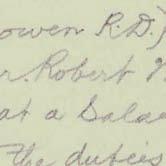 owen R.D.)
r. Robert
at a Sala
the duties